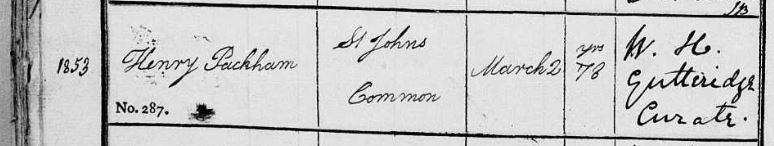 JB
1853
Henry Packham
No. 287.
St Johns
Common
March 2
yrs
78
W. H.
Gutteridge
Curate.